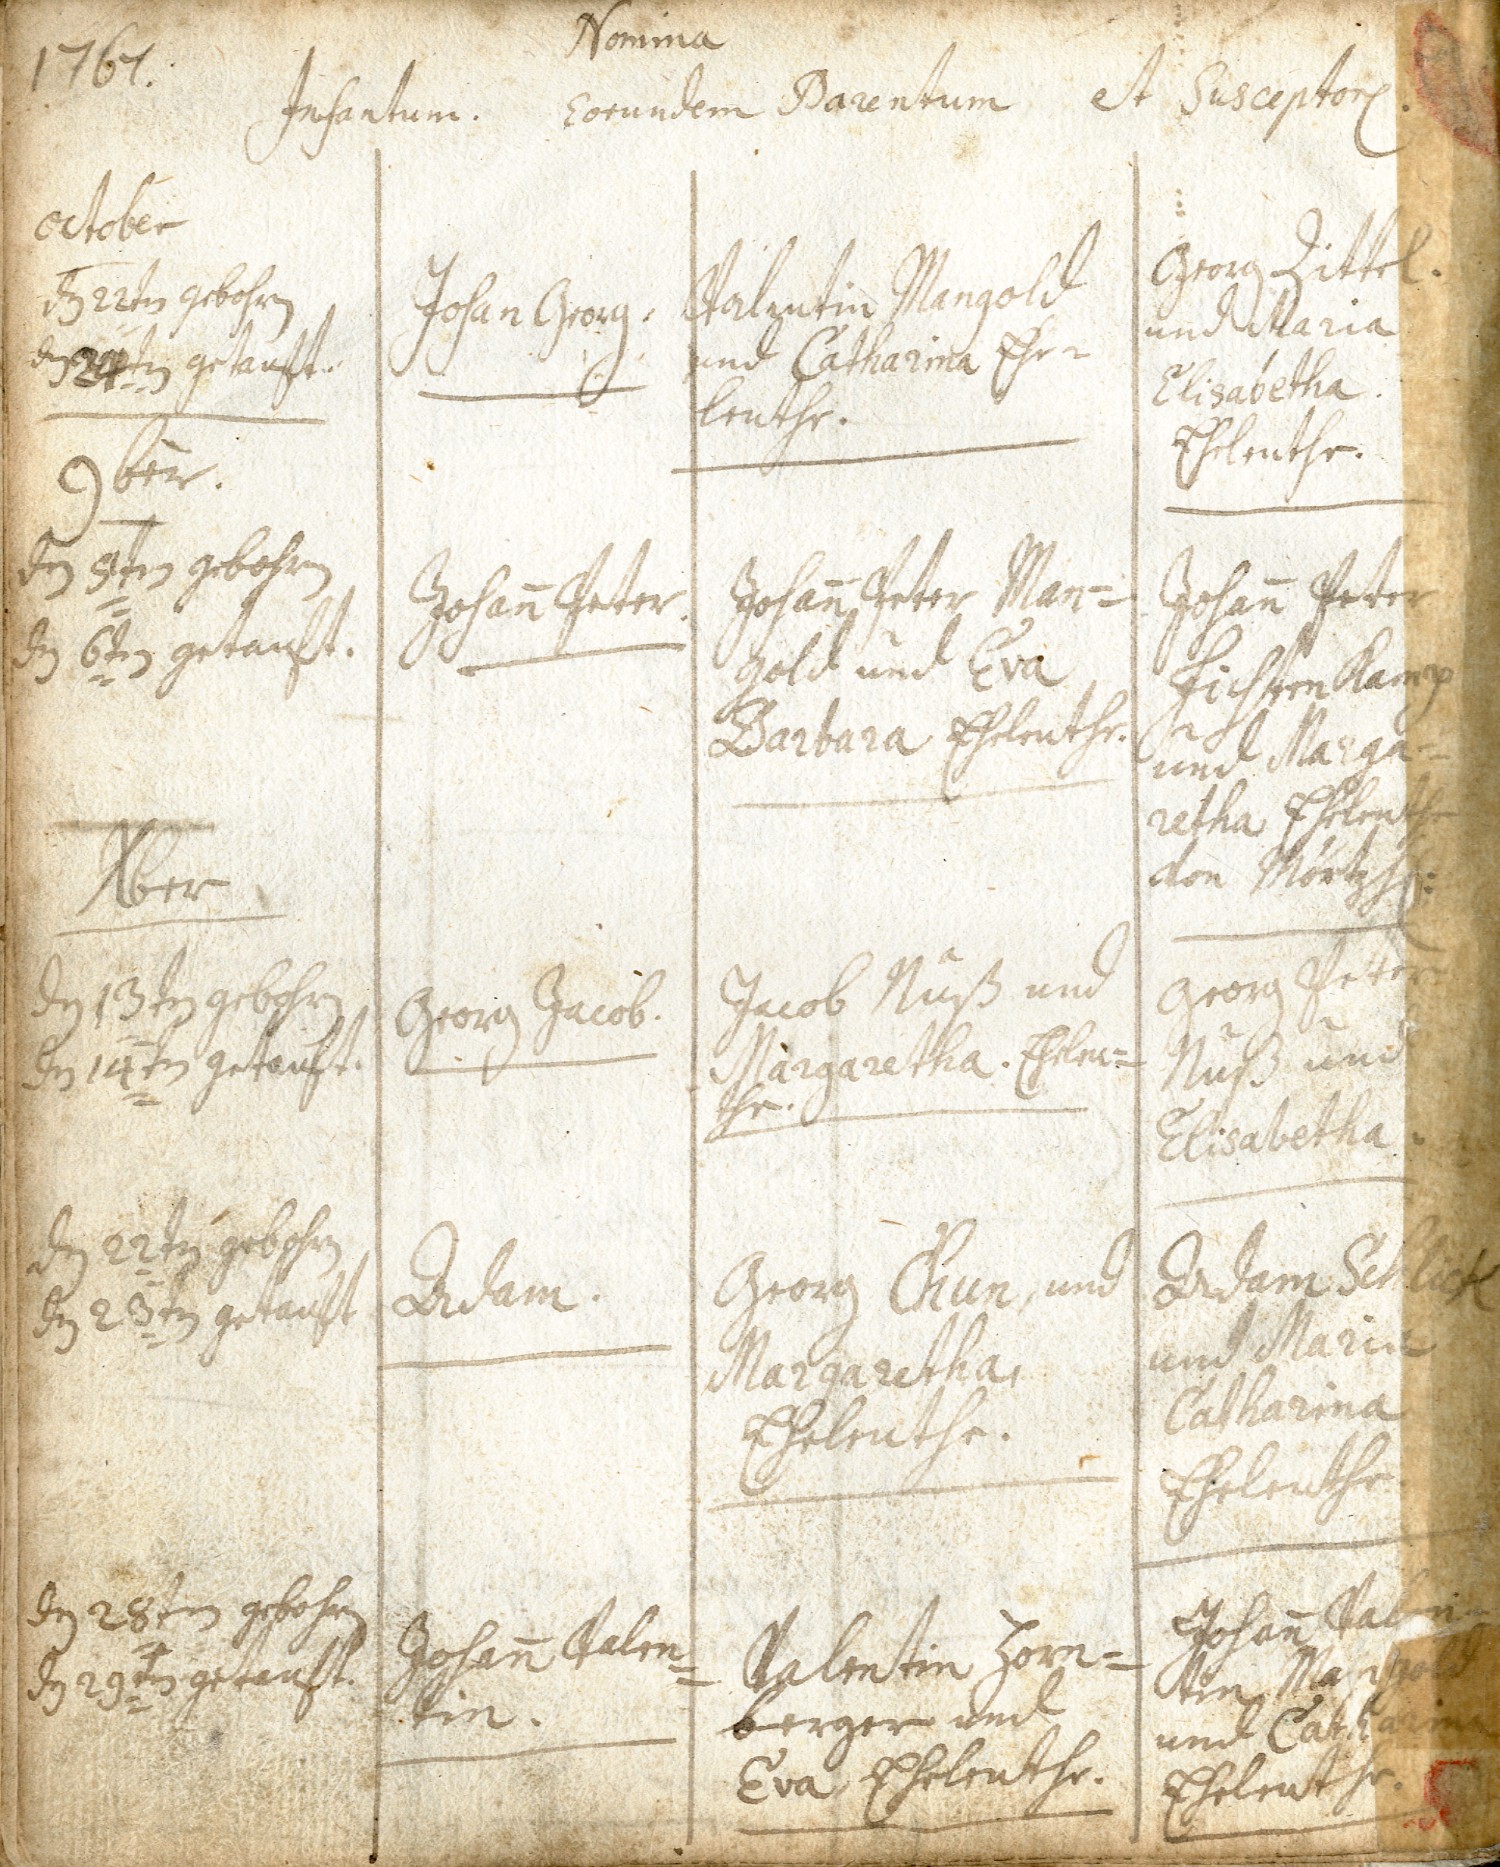 1767.
Nomina
Infantum. Eorundem Parentum et Susceptor.
october
den 22ten gebohrn
den 24ten getauft.
Johan Georg.
Valentin Mangold
und Catharina Ehe=
leuthe.
Georg Zittel.
und Maria
Elisabetha.
Eheleuthe.
9ber.
den 5ten gebohrn
den 6ten getauft.
Johan̄ Peter.
Johan̄ Peter Man=
gold und Eva
Barbara Eheleuthe.
Johan̄ Peter
und Marga=
retha Eheleuthe
Xber
den 13ten gebohrn
den 14ten getauft.
Georg Jacob.
Jacob Nuß und
Margaretha. Eheleu=
the.
Georg Peter
Nuß und
Elisabetha.
den 22ten gebohrn
den 23ten getauft
Adam.
Georg Chun, und
Margaretha,
Eheleuthe.
Adam Schlick
und Maria
Catharina
Eheleuthe.
den 28ten gebohrn
den 29ten getauft.
Johan̄ Valen=
tin.
Valentin Horn=
berger und
Eva Eheleuthe.
Johan̄ Valen=
tin Mangold
und Catharina
Eheleuthe.